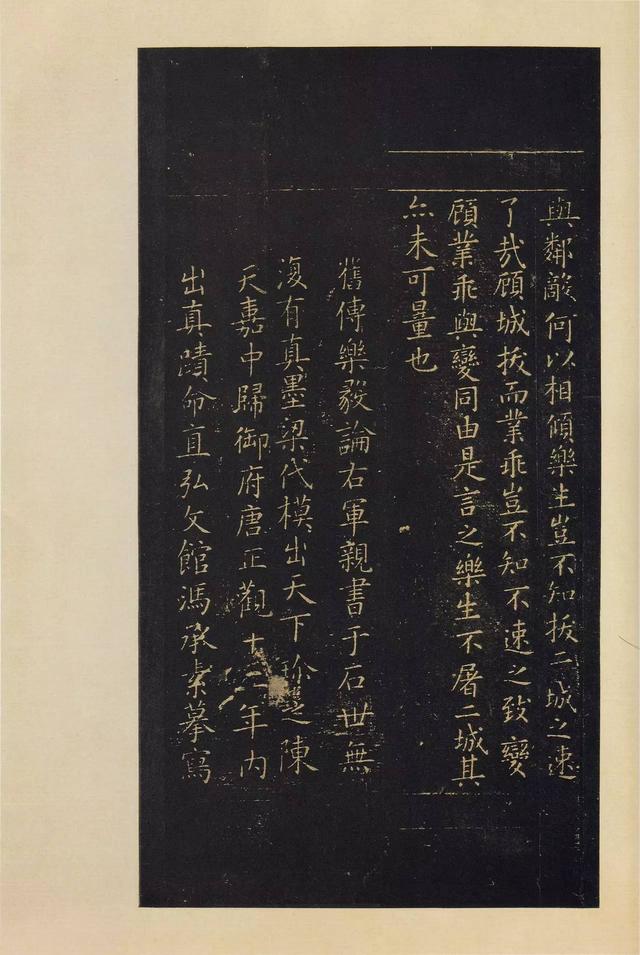 與鄰敵何以相傾樂生豈不知拔二城之速
了㦲顧城拔而業乖豈不知不速之致變
顧業乖與變同由是言之樂生不屠二城其
亦未可量也
舊傳樂毅論右軍親書于石世無
復有真墨梁代模出天下珍之陳
天嘉中歸御府唐正觀十三年內
出真蹟命直弘文館馮承素摹寫